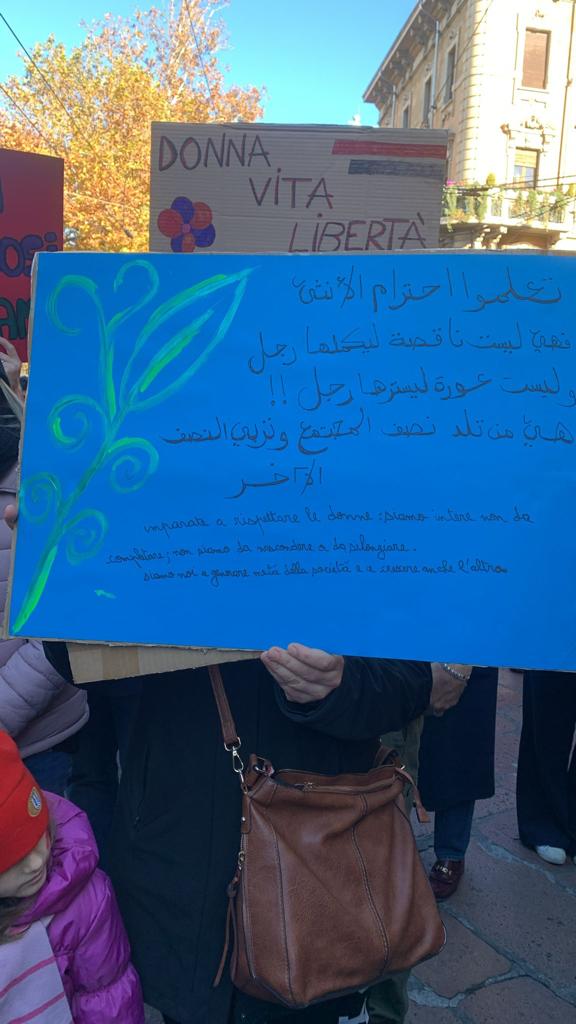 DONNA
VITA
LIBERTÀ
OSI
تعلموا احترام الأنثى
فهي ليست ناقصة ليكملها رجل
وليست عورة ليسترها رجل !!
هي من تلد نصف المجتمع وتربي النصف
الآخر
imparate a rispettare le donne: siamo intere non da
completare; non siamo da nascondere o da silenziare.
siamo noi a generare metà della società e a crescere anche l'altra